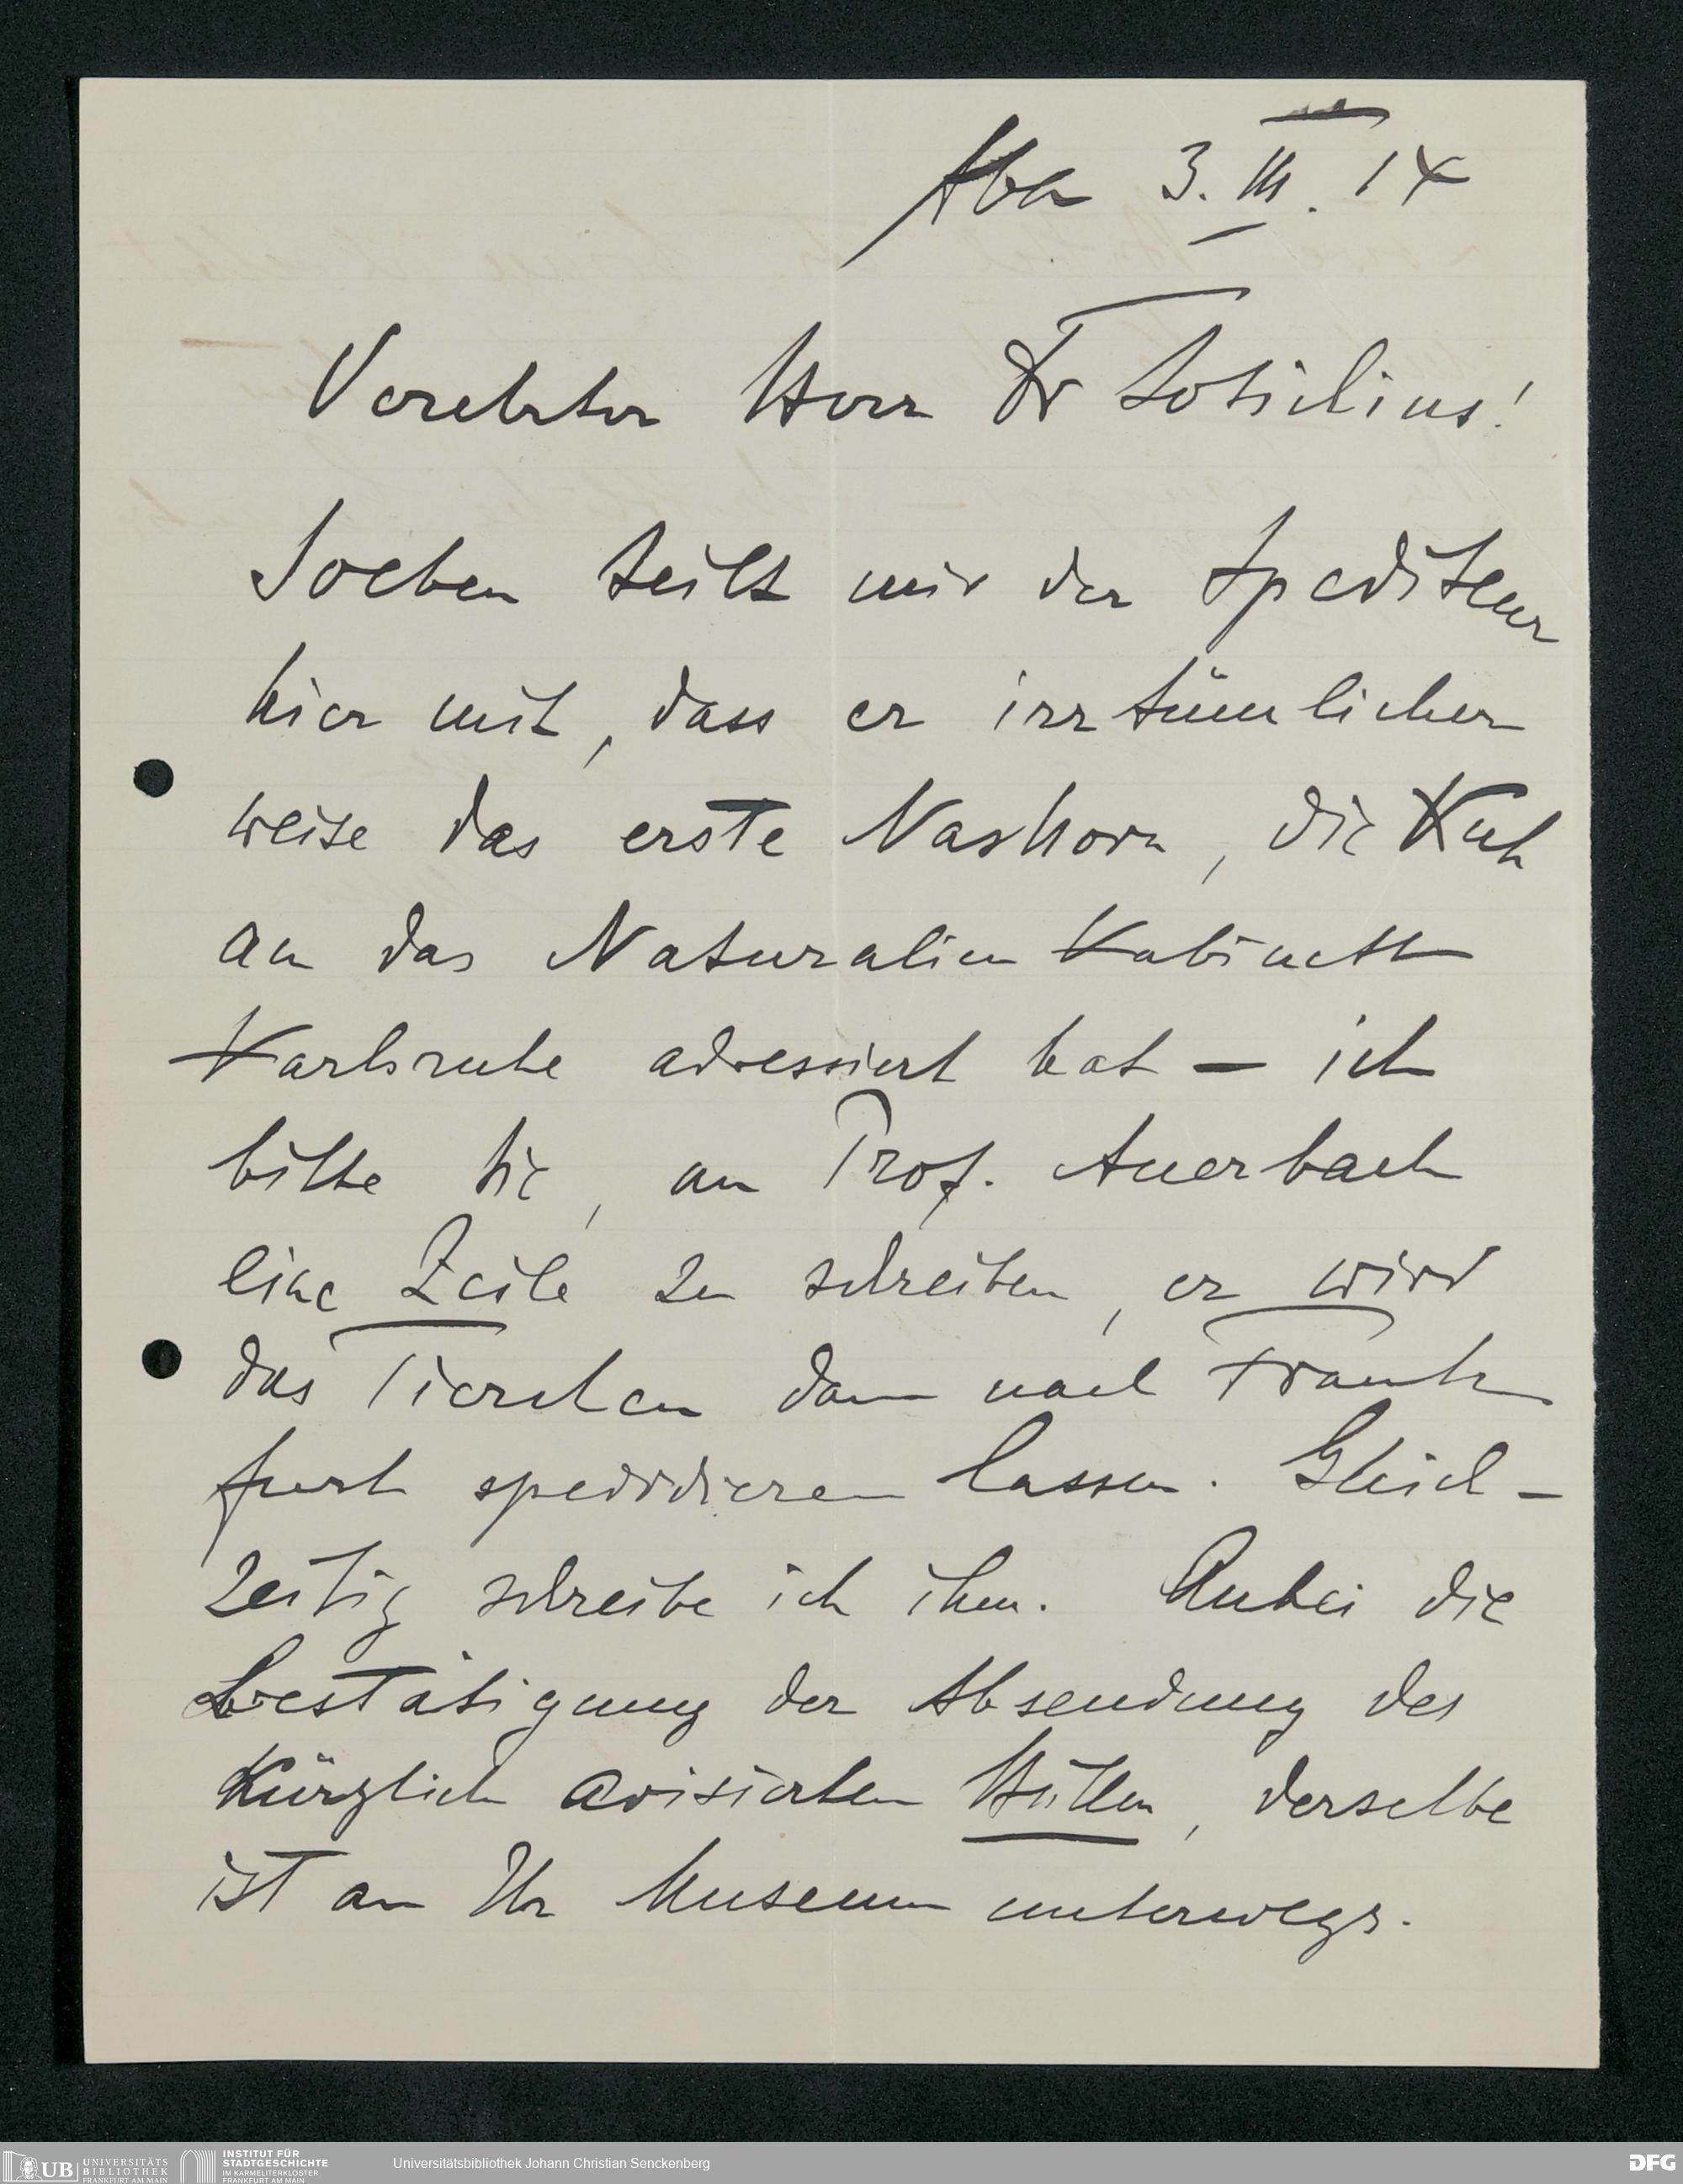 Aba 3. III. 14
Verehrter Herr Dr Lotichius!
Soeben teilt mir der Spediteur
hier mit, dass er irrtümlicher
weise das erste Nashorn, die Kuh
an das Naturalien Kabinett
Karlsruhe adressiert hat – ich
bitte Sie, an Prof. Auerbach
eine Zeile zu schreiben, er wird
das Tierchen dann nach Frank
furt spedidieren lassen. Gleich-
zeitig schreibe ich ihm. Anbei die
Bestätigung der Absendung des
Kürzlich avisierten Bullen, derselbe
ist an Ihr Museum unterwegs.
UB UNIVERSITÄTS
BIBLIOTHEK
FRANKFURT AM MAIN
INSTITUT FÜR
STADTGESCHICHTE
IM KARMELITERKLOSTER
FRANKFURT AM MAIN
Universitätsbibliothek Johann Christian Senckenberg
DFG